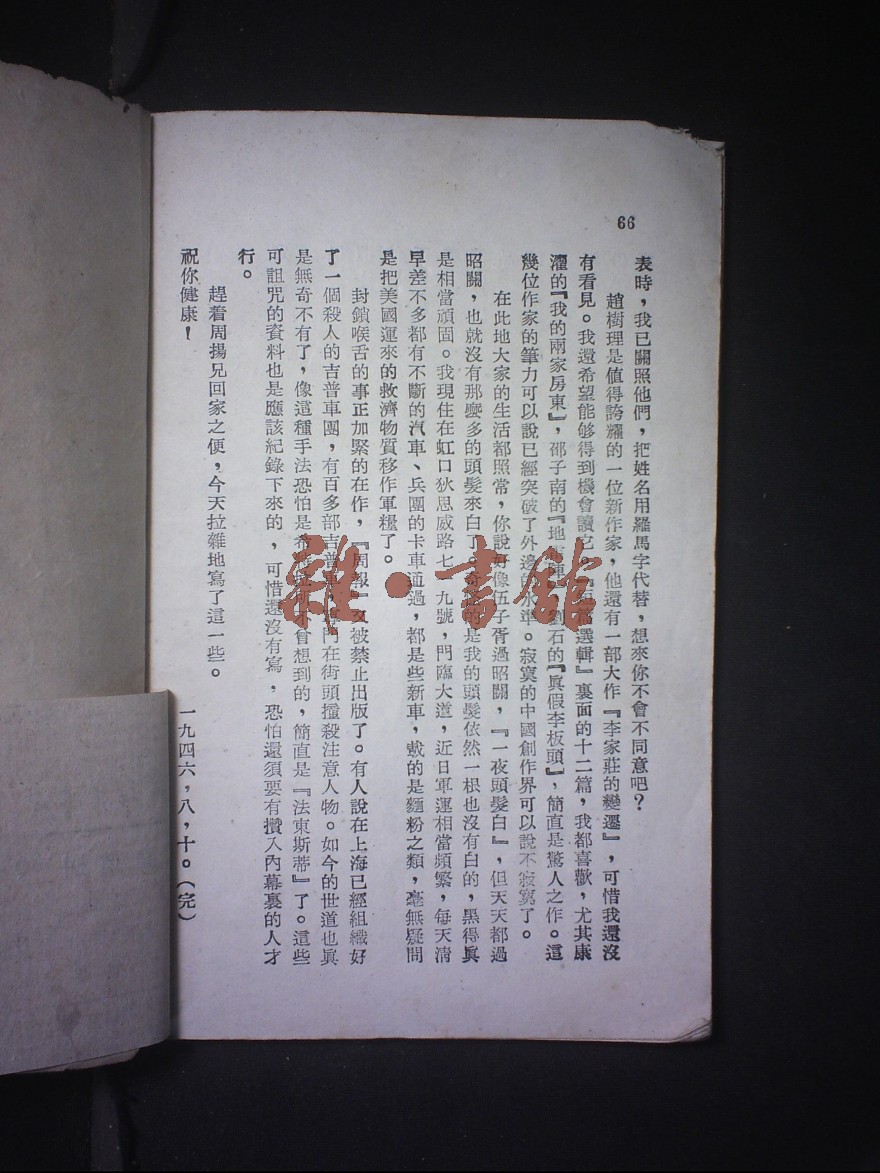 66
表時，我已關照他們，把姓名用羅馬字代替，想來你不會不同意吧？
趙樹理是值得誇耀的一位新作家，他還有一部大作『李家莊的變遷』，可惜我還沒
有看見。我還希望能够得到機會讀它。選輯』裏面的十二篇，我都喜歡，尤其康
濯的『我的兩家房東』，邵子南的『地石的『眞假李板頭』，簡直是驚人之作。這
幾位作家的筆力可以說已經突破了外邊的水準。寂寞的中國創作界可以說不寂寞了。
在此地大家的生活都照常，你說好像伍子胥過昭關，『一夜頭髮白』，但天天都過
昭關，也就沒有那麼多的頭髮來白了。的是我的頭髮依然一根也沒有白的，黑得眞
是相當頑固。我現住在虹口狄思威路七九號，門臨大道，近日軍運相當頻繁，每天淸
早差不多都有不斷的汽車、兵團的卡車通過，都是些新車，載的是麵粉之類，毫無疑問
是把美國運來的救濟物質移作軍糧了。
封鎖喉舌的事正加緊的在作，『周報』又被禁止出版了。有人說在上海已經組織好
了一個殺人的吉普車團，有百多部吉普門在街頭撞殺注意人物。如今的世道也眞
是無奇不有了，像這種手法恐怕是希不曾想到的，簡直是『法東斯蒂』了。這些
可詛咒的資料也是應該紀錄下來的，可惜還沒有寫，恐怕還須要有攢入內幕裏的人才
行。
趕着周揚兄回家之便，今天拉雜地寫了這一些。
祝你健康！
一九四六，八，十。（完）
雜·書館